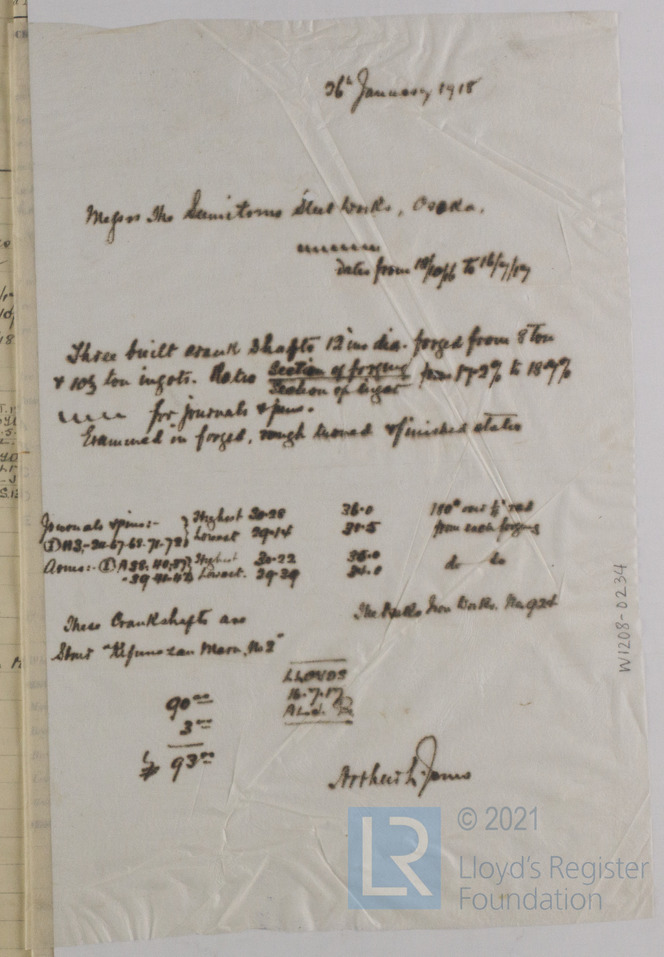 26th January 1918
Messrs The Sumitomo Steel Works, Osaka.
dates from to 16/7/17
Three built crank shafts 12 ins dia. forged from 8 ton
& 10½ ton ingots. Ratio Section of forging from 17.2% to 18.4%
Section of ingot
for journals & pins.
Examined in forged, rough turned & finished states
Journals & pins:- Highest 30.28 36.0 180° over ½" rad
Lowest 29.14 31.5 from each forging
Arms:- Highest 30.22 36.0 do do
Lowest. 29.39 31.0
These Crankshafts are The Iron Works. No 924
Stmr "Maru, No 2"
LLOYDS
16.7.17
90 00
3 00
93 00
Arthur L. Jones
W1208-0234
LR
© 2021
Lloyd's Register
Foundation